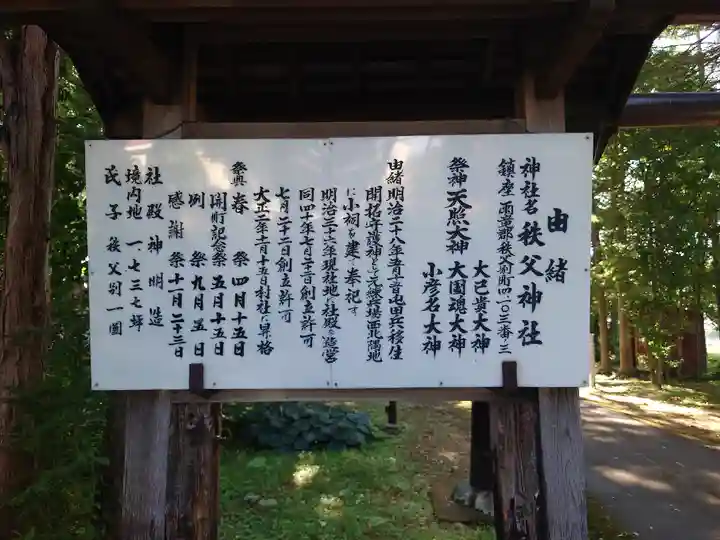 由緒
神社名 秩父神社
鎮座 雨竜郡秩父別町四一〇三番ノ三
大己貴大神
祭神 天照大神 大国魂大神
小彦名大神
由緒 明治二十八年五月二日屯田兵移住
開拓守護神として元練兵場西北隅地
に小祠を建て奉祀す
明治三十六年現社地に社殿を造営
同四十年七月二十二日創立許可
七月二十二日創立許可
大正二年十二月十五日村社に昇格
祭典 春祭 四月十五日
開町記念祭 五月十五日
例祭 九月五日
感謝祭 十一月二十三日
社殿 神明造
境内地 一、七三七坪
氏子 秩父別一圓